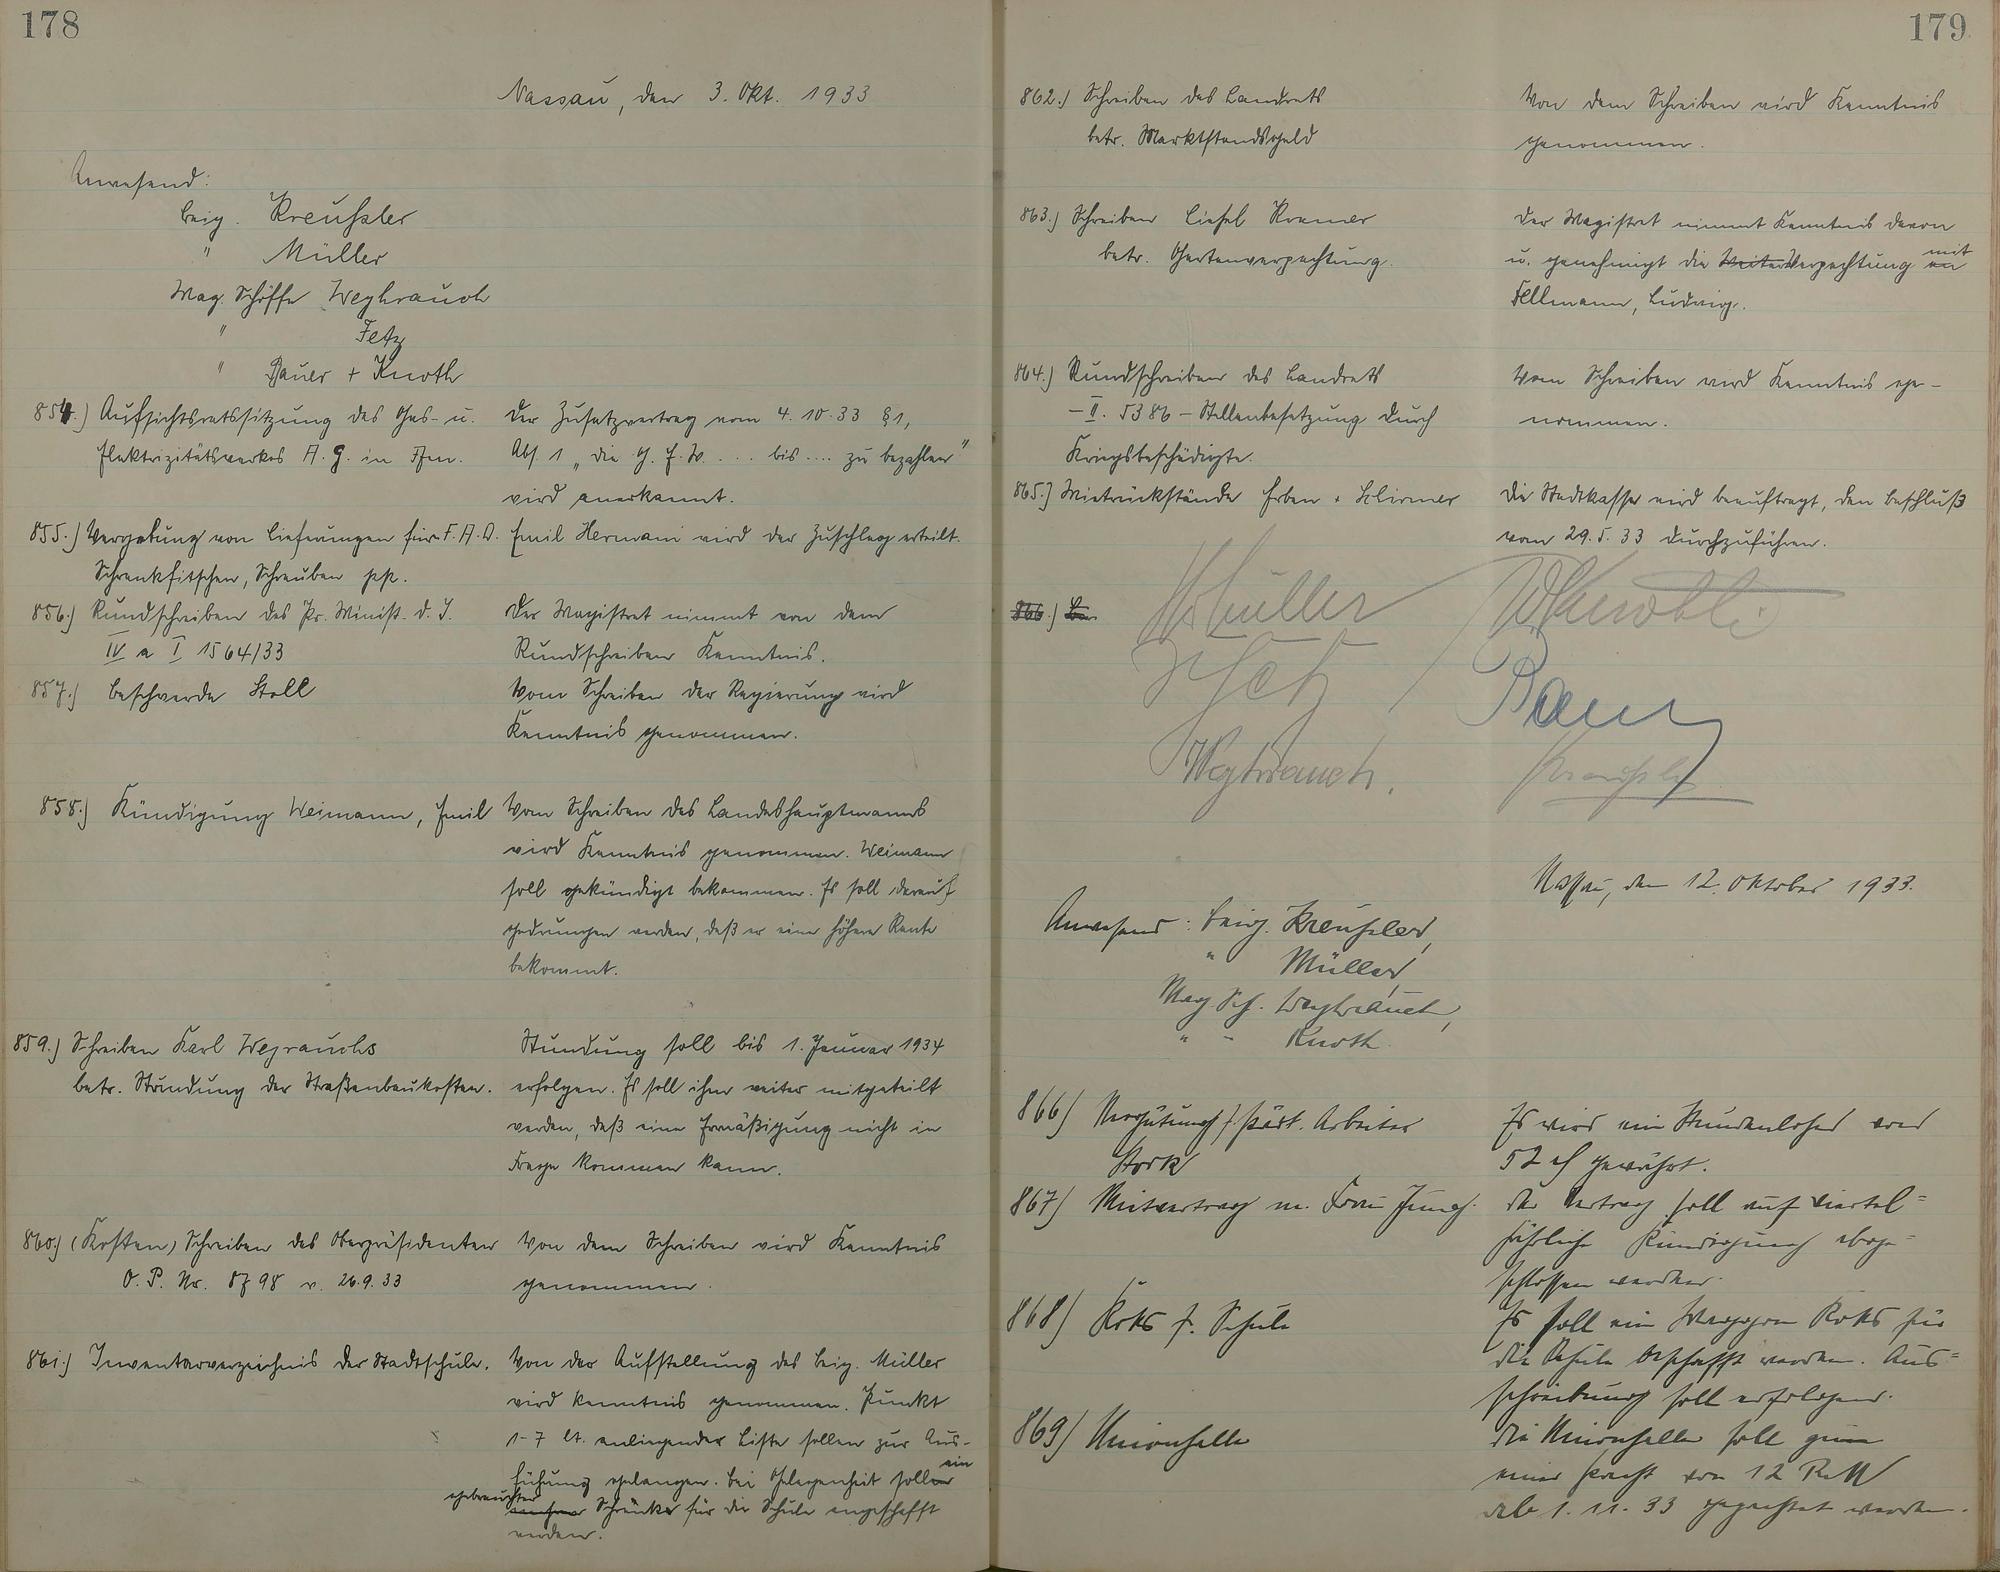 178
Nassau, den 3. Okt. 1933
Anwesend:
Beig. Kreußler
" Müller
Mag. Schöffe Weyhrauch
" Fetz
" Bauer + Knoth
854.) Aufsichtsratssitzung des Gas- u.
Elektrizitätswerkes A. G. in Ffm.
Der Zusatzvertrag vom 4. 10. 33 § 1,
Abs. 1 „die G. E. W. . . . bis .... zu bezahlen"
wird anerkannt.
855.) Vergebung von Lieferungen für F. A. D.
Schrankfitschen, Schrauben pp.
Emil Hermani wird der Zuschlag erteilt.
856.) Rundschreiben des Pr. Minist. d. I.
IV a I 1564/33
Der Magistrat nimmt von dem
Rundschreiben Kenntnis.
857.) Beschwerde Stoll
Vom Schreiben der Regierung wird
Kenntnis genommen.
858.) Kündigung Weimann, Emil
Vom Schreiben des Landeshauptmanns
wird Kenntnis genommen. Weimann
soll gekündigt bekommen. Es soll darauf
gedrungen werden, daß er eine höhere Rente
bekommt.
859.) Schreiben Karl Weyrauchs
betr. Stundung der Straßenbaukosten.
Stundung soll bis 1. Januar 1934
erfolgen. Es soll ihm weiter mitgeteilt
werden, daß eine Ermäßigung nicht in
Frage kommen kann.
860.) (Kosten) Schreiben des Oberpräsidenten
O. P. Nr. 8798 v. 26.9.33
Von dem Schreiben wird Kenntnis
genommen.
861.) Inventarverzeichnis der Stadtschule.
Von der Aufstellung des Beig. Müller
wird Kenntnis genommen. Punkt
1-7 lt. anliegender Liste sollen zur Aus-
führung gelangen. Bei Gelegenheit soll ein
gebrauchter Schrank für die Schule angeschafft
werden.
179
862.) Schreiben des Landrats
betr. Marktstandsgeld
Von dem Schreiben wird Kenntnis
genommen.
863.) Schreiben Liesel Kramer
betr. Gartenverpachtung.
Der Magistrat nimmt Kenntnis davon
u. genehmigt die Weiterverpachtung an mit
Fellmann, Ludwig.
864.) Rundschreiben des Landrats
- II. 5386 - Stellenbesetzung durch
Kriegsbeschädigte.
Vom Schreiben wird Kenntnis ge-
nommen.
865.) Mietrückstände Erben + Schirmer
Die Stadtkasse wird beauftragt, den Beschluß
vom 29. 5. 33 durchzuführen.
866.)
Müller
WKnoth
Fetz
Bauer
Weyhrauch.
Kreußler
Nassau, den 12. Oktober 1933.
Anwesend: Beig. Kreußler,
" Müller,
Mag. Sch. Weyhrauch,
" - Knoth.
866) Vergütung f. städt. Arbeiter
Stork
Es wird ein Stundenlohn von
52 ₰ gewährt.
867) Mietvertrag m. Frau Jung.
Der Vertrag soll auf viertel=
jährliche Kündigung abge=
schlossen werden.
868) Koks f. Schule
Es soll ein Waggon Koks für
die Schule beschafft werden. Aus=
schreibung soll erfolgen.
869) Unionhalle
Die Unionhalle soll zum
einer Pacht von 12 RM
ab 1. 11. 33 gepachtet werden.